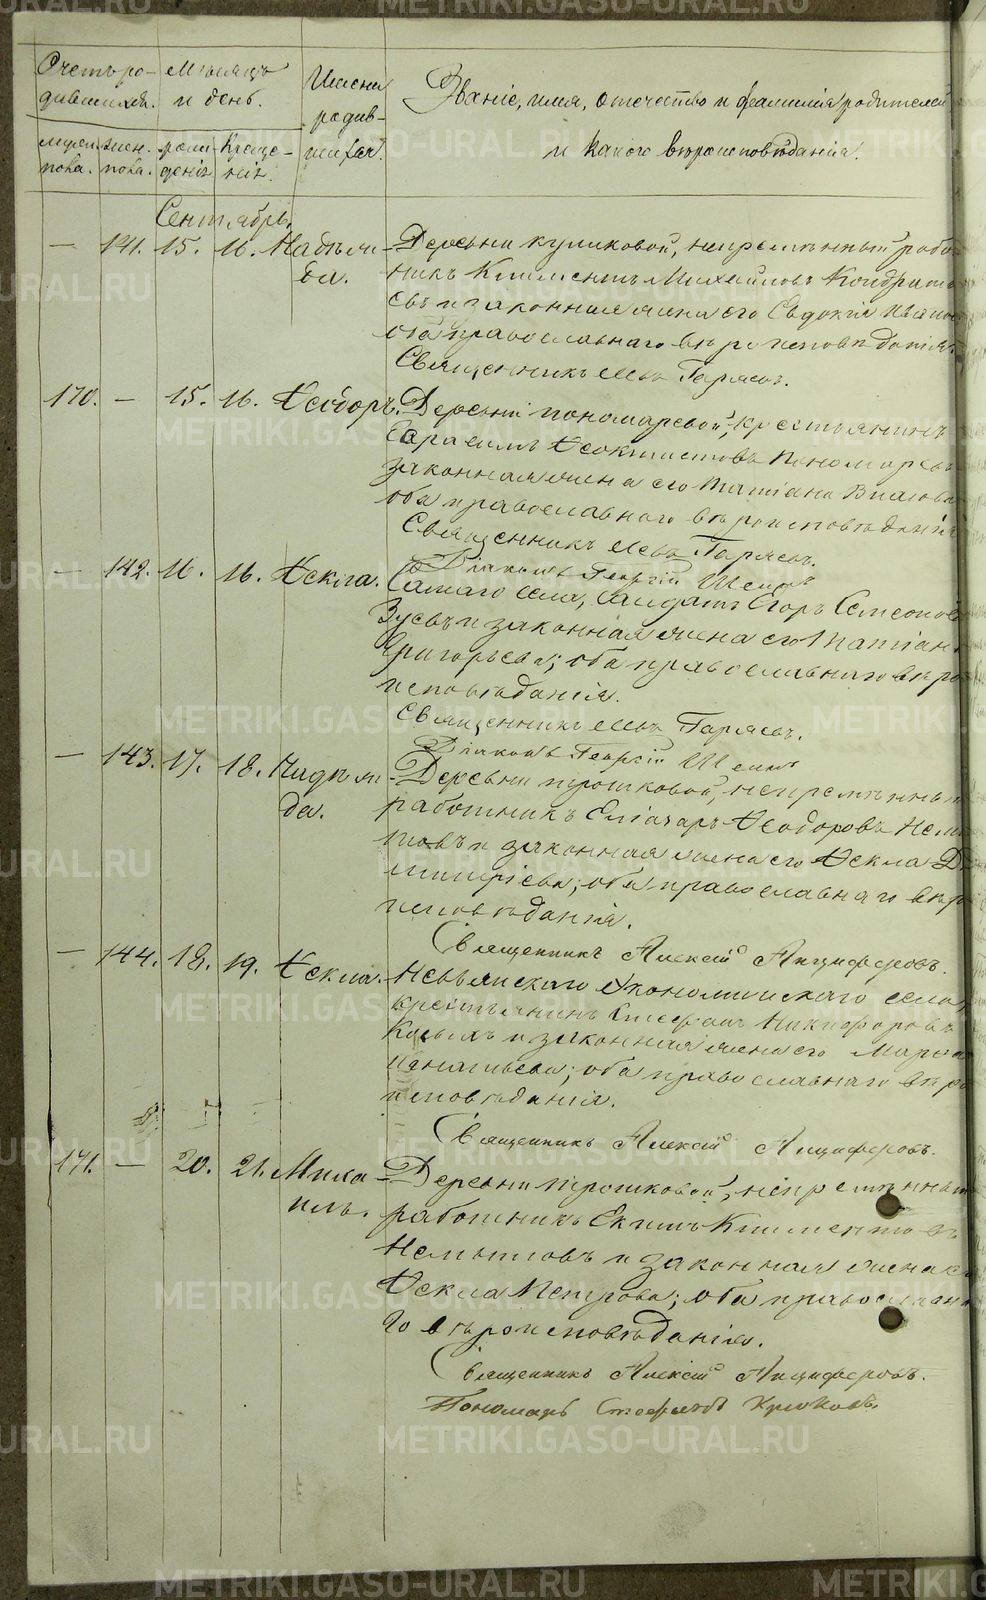 METRIKI.GASO-URAL.RU
Счетъ ро-
дившихся.
Мѣсяцъ
и день.
Имена
родив-
шихся.
Званіе, имя, отечество и фамилія родителей
и какого вѣроисповѣданія.
муж.
пола.
жен.
пола.
рож-
денія
Креще-
нія.
Сентябрь.
— 141. 15. 16.
Деревни Куликовой, непремѣнный работ-
никъ Климентъ Михайловъ Кондрать-
евъ и законная жена его Евдокія Ивано
оба православнаго вѣроисповѣданія.
Священникъ Левъ Гаряевъ.
170. — 15. 16. Ѳеодоръ. Деревни Пономаревой, крестьянинъ
Герасимъ Ѳеоктистовъ Пономаревъ
законная жена его Татіана Власова
оба православнаго вѣроисповѣданія
Священникъ Левъ Гаряевъ.
Діаконъ Георгій
— 142. 16. 16. Ѳекла. Самаго села, Солдатъ Егоръ Семеновъ
Зуевъ и законная жена его Татіана
Григорьева; оба православнаго вѣро
исповѣданія.
Священникъ Левъ Гаряевъ.
Діаконъ Георгій
— 143. 17. 18. Надеж-
да.
Деревни Трошковой, непремѣнный
работникъ Елеазаръ Ѳеодоровъ Немы
товъ и законная жена его Ѳекла Д
митріева; оба православнаго вѣро
исповѣданія.
Священникъ Алексій Анциферовъ.
— 144. 18. 19. Ѳекла. Невьянскаго Экономическаго села,
крестьянинъ Стефанъ Никифоровъ
и законная жена его Марѳа
Игнатьева; оба православнаго вѣро
исповѣданія.
Священникъ Алексій Анциферовъ.
171. — 20. 21. Миха-
илъ.
Деревни Трошковой, непремѣнный
работникъ Климентовъ
Немытовъ и законная жена е
Ѳекла Петрова; оба православна
го вѣроисповѣданія.
Священникъ Алексій Анциферовъ.
Пономарь Стефанъ Крюковъ.